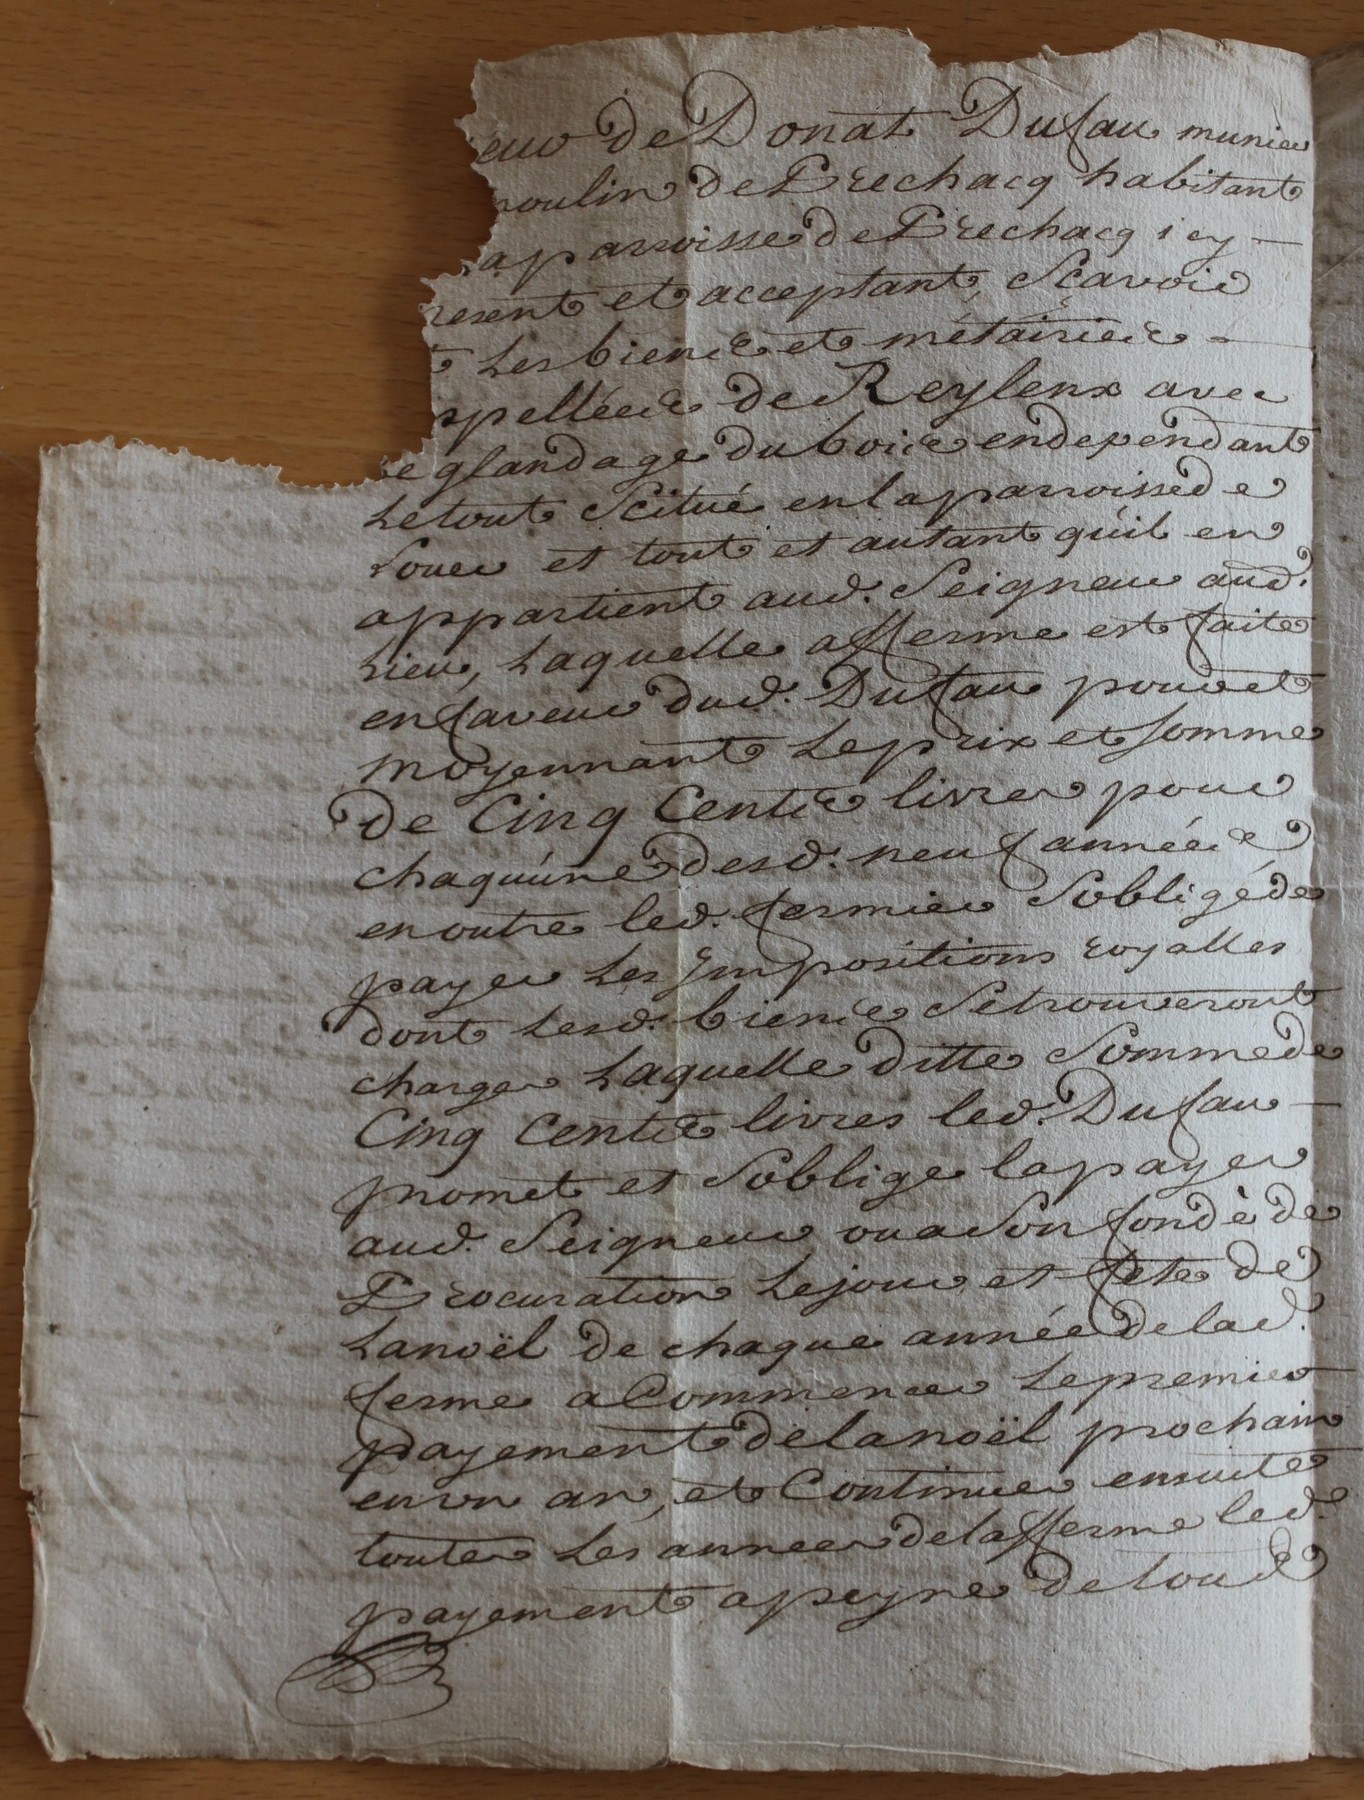 eur de Donat Dufau munier
moulin de Prechacq habitant
la parroisse de Prechacq icy
resent et acceptant, Scavoir
Les biens et métairies
ppellées de Reylenx avec
le glandage du bois en dependant
Le tout Scitué en la parroisse de
Louer et tout et autant qu'il en
appartient aud. Seigneur aud.
Lieu, Laquelle afferme est faite
en faveur dud. Dufau pour et
moyennant Le prix et Somme
De Cinq Cents livres pour
chaquúne desd. neuf années
en outre led. fermier S'obligé de
payer Les Impositions royalles
dont Lesd. biens Se trouveront
charges Laquelle ditte Somme de
Cinq Cents livres led. Dufau
promet et S'oblige la payer
aud. Seigneur ou a Son fondè de
Procuration Le jour et fete de
La noël de chaque année de lad.
ferme a Commencer Le premier
payement de la noël prochain
en un an, et Continuer ensuite
toutes Les annees de l'afferme led.
payement a peyne de tous d